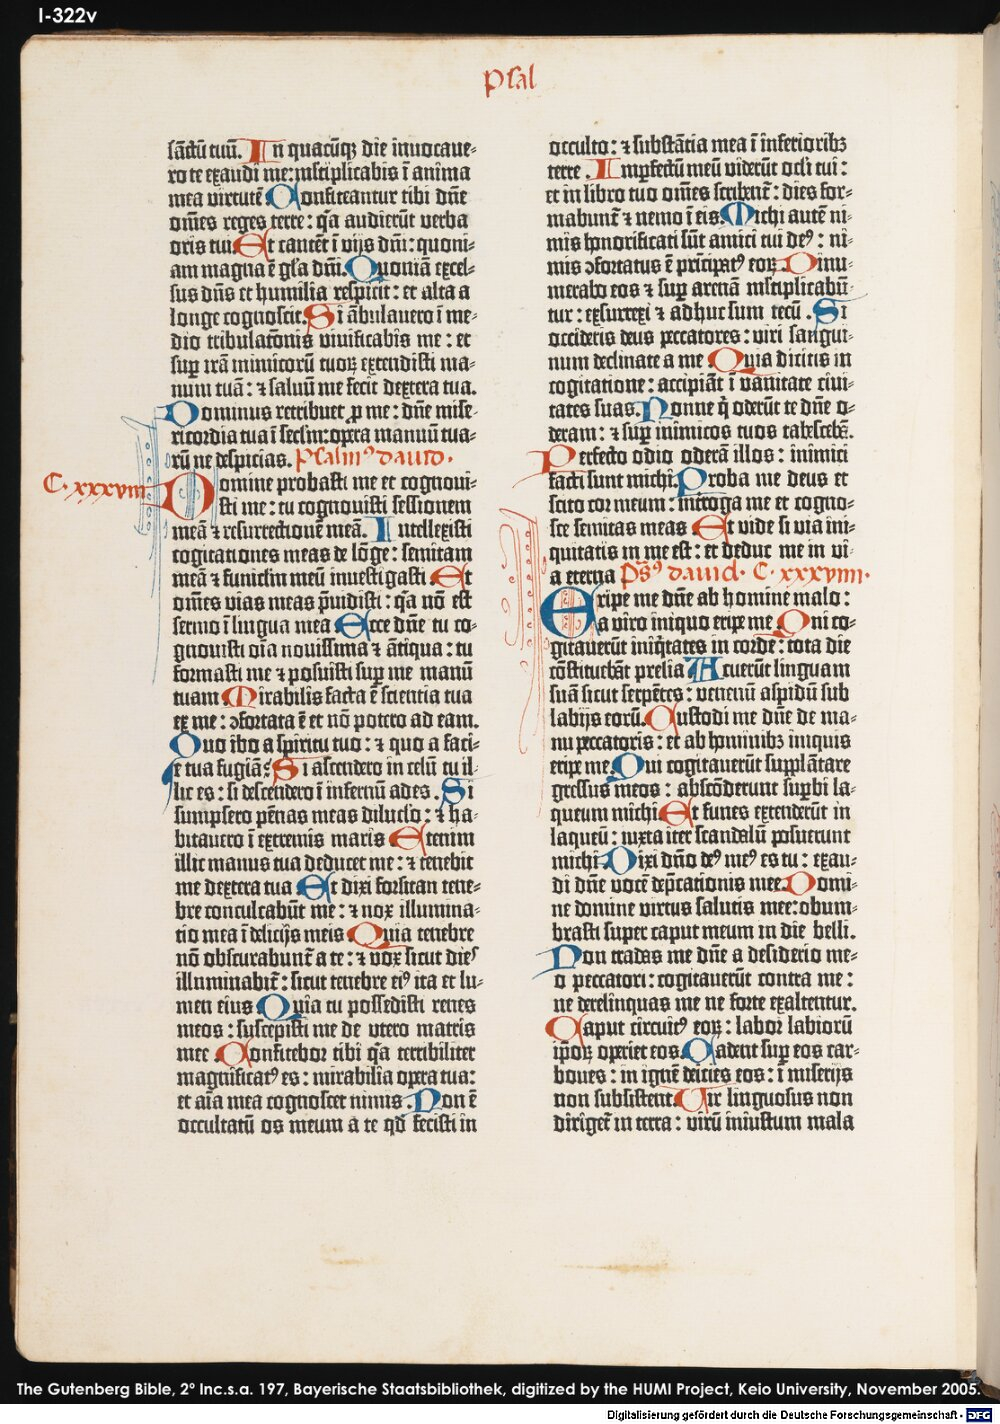 I-322v
Psal
sāctū tuū. In quacūqz die inuocaue-
ro te exaudi me: ml'tiplicabis ī anima
mea virtutē Confiteantur tibi dn̄e
om̄es reges terre: q̄a audierūt verba
oris tui. Et cantēt ī vijs dn̄i: quoni-
am magna ē gl'a dn̄i. Quoniā excel-
sus dn̄s et humilia respicit: et alta a
longe cognoscit. Si ābulauero ī me-
dio tribulatōnis viuificabis me: et
sup irā inimicorū tuoꝝ extendisti ma-
num tuā: ⁊ saluū me fecit dextera tua.
Dominus retribuet ꝓ me: dn̄e mise-
ricordia tua ī secl'm: opera manuū tua-
rū ne despicias. Psalmꝰ dauid.
C. xxxviii
Domine probasti me et cognoui-
sti me: tu cognouisti sessionem
meā ⁊ resurrectionē meā. Intellexisti
cogitationes meas de lōge: semitam
meā ⁊ funicl'm meū inuestigasti Et
om̄es vias meas p̄uidisti: q̄a nō est
sermo ī lingua mea Ecce dn̄e tu co-
gnouisti oīa nouissima ⁊ ātiqua: tu
formasti me ⁊ posuisti sup me manū
tuam Mirabilis facta ē scientia tua
ex me: ↄfortata ē et nō potero ad eam.
Quo ibo a spiritu tuo: ⁊ quo a faci-
e tua fugiā: Si ascendero in celū tu il-
lic es: si descendero ī infernū ades. Si
sumpsero pēnas meas diluc'lo: ⁊ ha-
bitauero ī extremis maris Etenim
illic manus tua deducet me: ⁊ tenebit
me dextera tua Et dixi forsitan tene-
bre conculcabūt me: ⁊ nox illumina-
tio mea ī delicijs meis Quia tenebre
nō obscurabunt̄ a te: ⁊ vox sicut dies
illuminabit̄: sicut tenebre eiꝰ ita et lu-
men eius Quia tu possedisti renes
meos: suscepisti me de vtero matris
mee Confitebor tibi q̄a terribiliter
magnificatꝰ es: mirabilia opera tua:
et aīa mea cognoscet nimis. Non ē
occultatū os meum a te qd̄ fecisti in
occulto: ⁊ substātia mea ī inferioribꝫ
terre. Imperfectū meū viderūt ocl'i tui:
et in libro tuo om̄es scribent̄: dies for-
mabunt̄ ⁊ nemo ī eis. Michi autē ni-
mis honorificati sūt amici tui deꝰ: ni-
mis ↄfortatus ē principatꝰ eoꝝ. Dinu-
merabo eos ⁊ sup arenā ml'tiplicabū-
tur: exsurrexi ⁊ adhuc sum tecū. Si
occideris deus peccatores: viri sangui-
num declinate a me Quia dicitis in
cogitatione: accipiāt ī vanitate ciui-
tates suas. Nonne q̄ oderūt te dn̄e o-
deram: ⁊ sup inimicos tuos tabescebā.
Perfecto odio oderā illos: inimici
facti sunt michi. Proba me deus et
scito cor meum: interroga me et cogno-
sce semitas meas Et vide si via ini-
quitatis in me est: et deduc me in vi-
a eterna Ps̄ꝰ dauid. C. xxxviiii.
Eripe me dn̄e ab homine malo:
a viro iniquo eripe me Qui co-
gitauerūt iniq̄tates in corde: tota die
cōstituebāt prelia Acuerūt linguam
suā sicut serpētes: venenū aspidū sub
labijs eorū. Custodi me dn̄e de ma-
nu peccatoris: et ab hominibꝫ iniquis
eripe me. Qui cogitauerūt supplātare
gressus meos: abscōderunt superbi la-
queum michi. Et funes extenderūt in
laqueū: iuxta iter scandalū posuerunt
michi Dixi dn̄o deꝰ meꝰ es tu: exau-
di dn̄e vocē dep̄cationis mee. Domi-
ne domine virtus salutis mee: obum-
brasti super caput meum in die belli.
Non tradas me dn̄e a desiderio me-
o peccatori: cogitauerūt contra me:
ne derelinquas me ne forte exaltentur.
Caput circuitꝰ eoꝝ: labor labiorū
ip̄oꝝ operiet eos. Cadent sup eos car-
bones: in ignē deicies eos: ī miserijs
non subsistent. Uir linguosus non
diriget̄ in terra: virū iniustum mala
The Gutenberg Bible, 2° Inc.s.a. 197, Bayerische Staatsbibliothek, digitized by the HUMI Project, Keio University, November 2005.
Digitalisierung gefördert durch die Deutsche Forschungsgemeinschaft - DFG